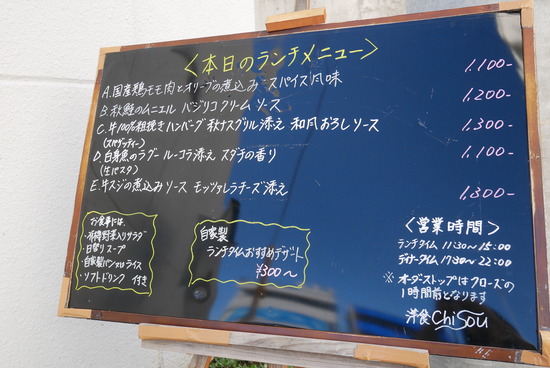 <本日のランチメニュー>
A.国産鶏モモ肉とオリーブの煮込み スパイス風味 1,100-
B.秋鮭のムニエル バジリコクリームソース 1,200-
C.牛100%粗挽きハンバーグ 秋ナスグリル添え 和風おろしソース 1,300-
(スパゲッティー)
D.白身魚のラグー ルーコラ添え スダチの香り 1,100-
(生パスタ)
E.牛スジの煮込みソース モッツァレラチーズ添え 1,300-
お食事には、
・有機野菜入りサラダ
・日替りスープ
・自家製パンorライス
・ソフトドリンク 付き
自家製
ランチタイムおすすめデザート
¥300〜
<営業時間>
ランチタイム 11:30〜15:00
ディナータイム 17:30〜22:00
※オーダーストップはクローズの
1時間前となります
洋食 ChiSou